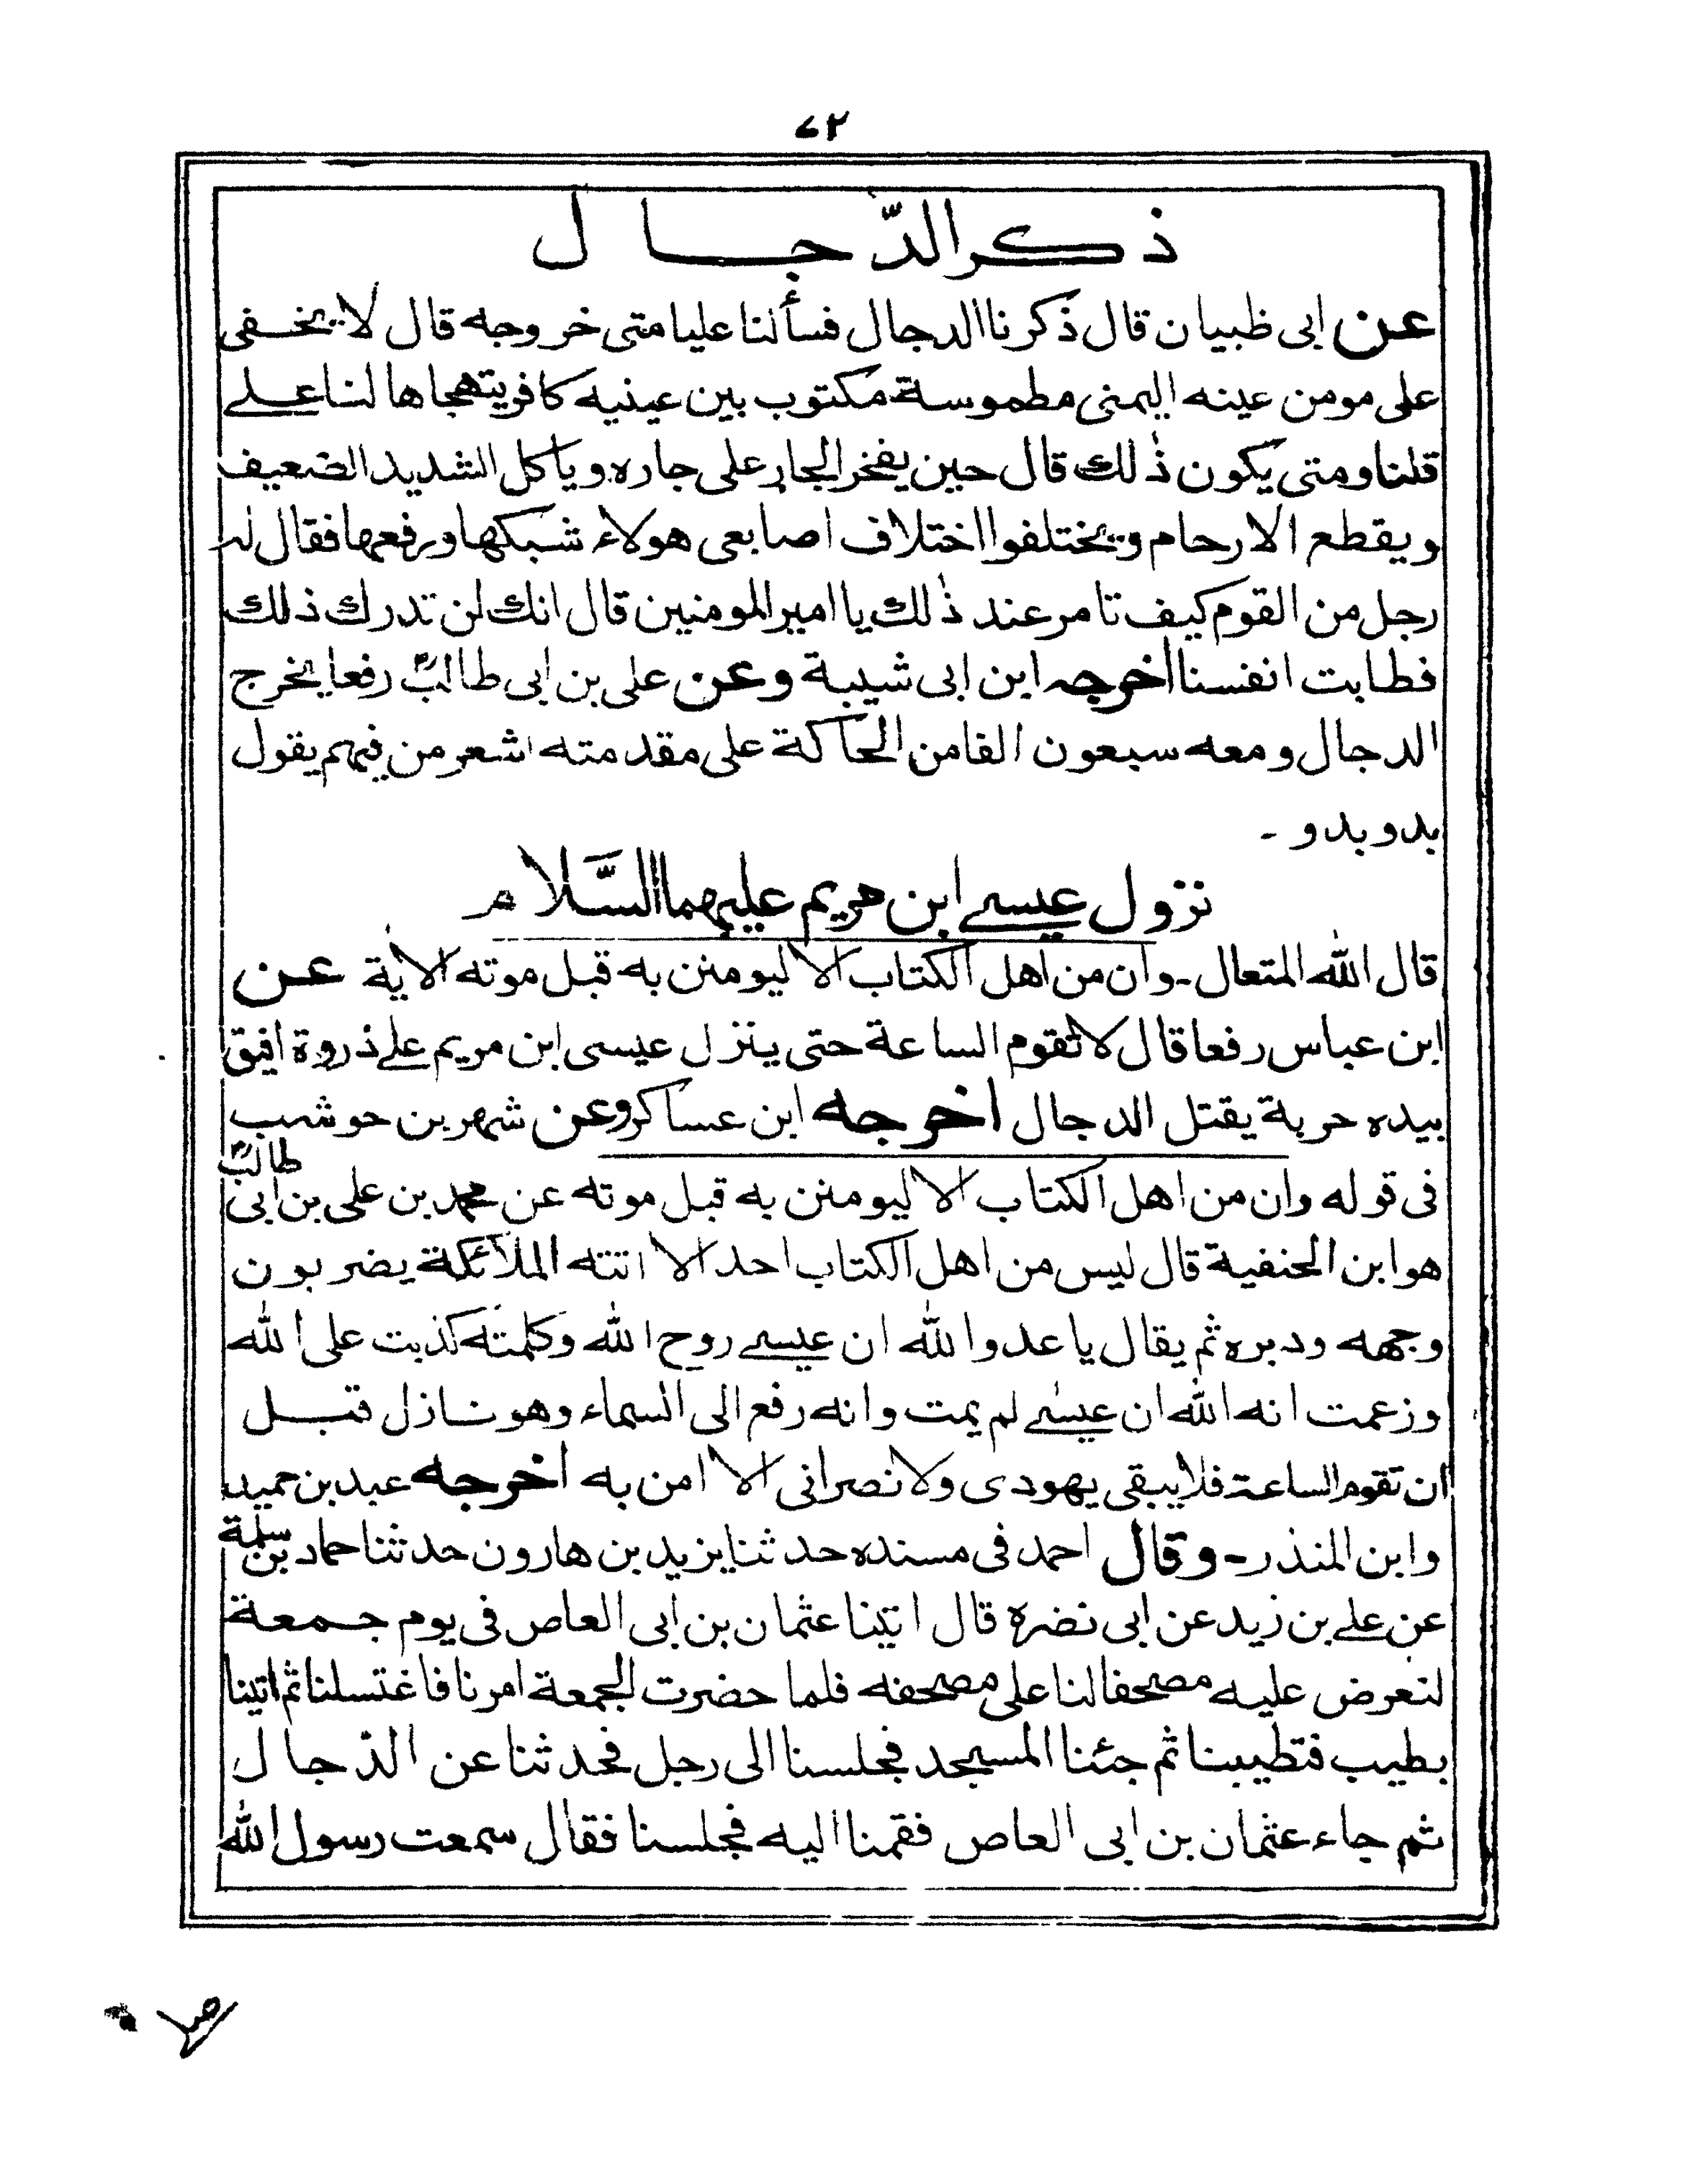 ۷۲
ذكر الدّجال
عن ابى ظبيان قال ذكرنا الدجال فسألنا عليا متى خروجه قال لا يخفى
على مومن عينه اليمنى مطموسة مكتوب بين عينيه كافر يتهجاها لنا على
قلنا ومتى يكون ذلك قال حين يفخر الجار على جاره وياكل الشديد الضعيف
ويقطع الارحام ويختلفوا اختلاف اصابعى هولاء شبكها ورفعها فقال له
رجل من القوم كيف تامر عند ذلك يا امير المومنين قال انك لن تدرك ذلك
فطابت انفسنا اخرجه ابن ابى شيبة وعن على بن ابى طالب رفعا يخرج
الدجال ومعه سبعون الفا من الحاكة على مقدمته اشعر من فيهم يقول
بدو بدو -
نزول عيسى ابن مريم عليهما السّلام
قال الله المتعال - وان من اهل الكتاب الا ليومنن به قبل موته الاية عن
ابن عباس رفعا قال لا تقوم الساعة حتى ينزل عيسى ابن مريم على ذروة افيق
بيده حربة يقتل الدجال اخرجه ابن عساكر وعن شهر بن حوشب
فى قوله وان من اهل الكتاب الا ليومنن به قبل موته عن محمد بن على بن ابى طالب
هو ابن الحنفية قال ليس من اهل الكتاب احد الا اتته الملائكة يضربون
وجهه ودبره ثم يقال يا عدو الله ان عيسى روح الله وكلمته كذبت على الله
وزعمت انه الله ان عيسى لم يمت وانه رفع الى السماء وهو نازل قبل
ان تقوم الساعة فلا يبقى يهودى ولا نصرانى الا امن به اخرجه عبد بن حميد
وابن المنذر - وقال احمد فى مسنده حدثنا يزيد بن هارون حدثنا حماد بن سلمة
عن على بن زيد عن ابى نضرة قال اتينا عثمان بن ابى العاص فى يوم جمعة
لنعرض عليه مصحفا لنا على مصحفه فلما حضرت الجمعة امرنا فاغتسلنا ثم اتينا
بطيب فتطيبنا ثم جئنا المسجد فجلسنا الى رجل فحدثنا عن الدجال
ثم جاء عثمان بن ابى العاص فقمنا اليه فجلسنا فقال سمعت رسول الله